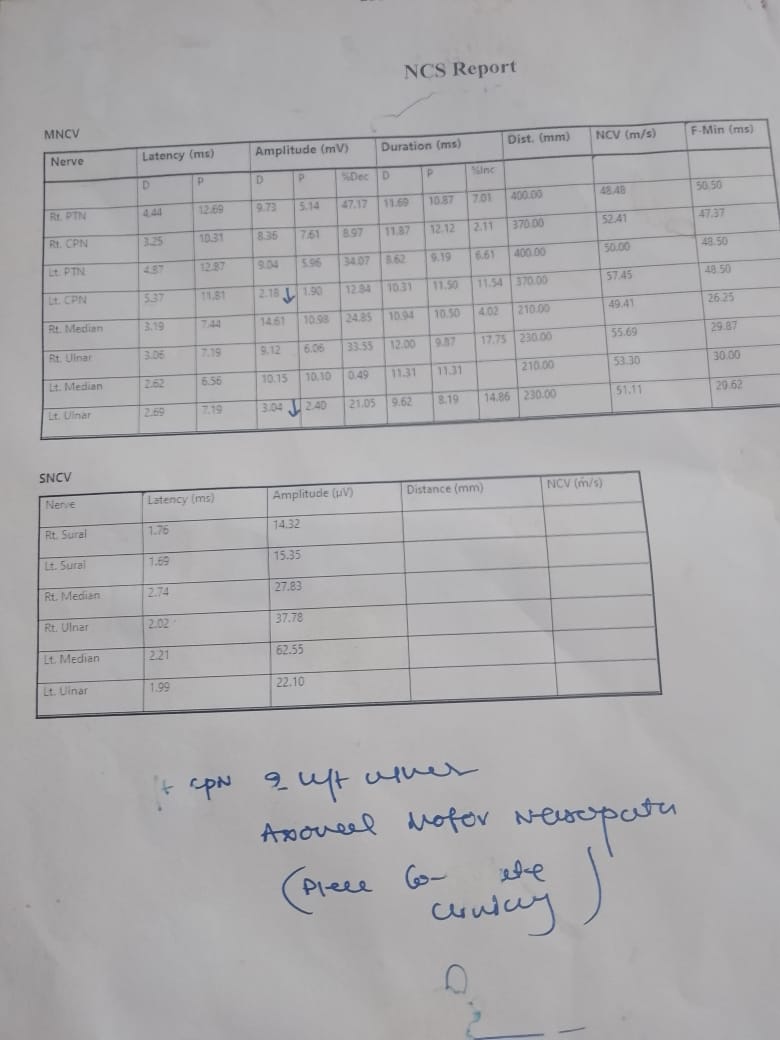 NCS Report
MNCV
Nerve Latency (ms) Amplitude (mV) Duration (ms) Dist. (mm) NCV (m/s) F-Min (ms)
D P D P %Dec D P %Inc
Rt. PTN 4.44 12.69 9.73 5.14 47.17 11.69 10.87 7.01 400.00 48.48 50.50
Rt. CPN 3.25 10.31 8.36 7.61 8.97 11.87 12.12 2.11 370.00 52.41 47.37
Lt. PTN 4.87 12.87 9.04 5.96 34.07 8.62 9.19 6.61 400.00 50.00 48.50
Lt. CPN 5.37 11.81 2.18 ↓ 1.90 12.84 10.31 11.50 11.54 370.00 57.45 48.50
Rt. Median 3.19 7.44 14.61 10.98 24.85 10.94 10.50 4.02 210.00 49.41 26.25
Rt. Ulnar 3.06 7.19 9.12 6.06 33.55 12.00 9.87 17.75 230.00 55.69 29.87
Lt. Median 2.62 6.56 10.15 10.10 0.49 11.31 11.31 210.00 53.30 30.00
Lt. Ulnar 2.69 7.19 3.04 ↓ 2.40 21.05 9.62 8.19 14.86 230.00 51.11 29.62
SNCV
Nerve Latency (ms) Amplitude (µV) Distance (mm) NCV (m/s)
Rt. Sural 1.76 14.32
Lt. Sural 1.69 15.35
Rt. Median 2.74 27.83
Rt. Ulnar 2.02 37.78
Lt. Median 2.21 62.55
Lt. Ulnar 1.99 22.10
CPN
Motor